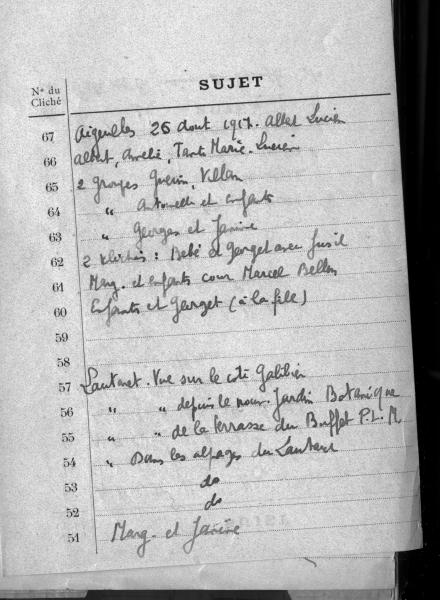 N° du Cliché SUJET
67 Aiguilles 26 Aout 1917. Albert Lucien
66 Albert, Amélie, Tante Marie. Lucien
65 2 groupes Guérin, Villan
64 " Antoinette et Enfants
63 " Georges et Janine
62 2 clichés : Bébé et Georget avec fusil
61 Marg. et enfants cour Marcel Bellon
60 Enfants et Georget (à la file)
59
58
57 Lautaret. Vue sur le coté Galibier
56 " " depuis le nouv. Jardin Botanique
55 " " de la terrasse du Buffet P.L.M
54 " Dans les alpages du Lautaret
53 do
52 do
51 Marg. et Janine